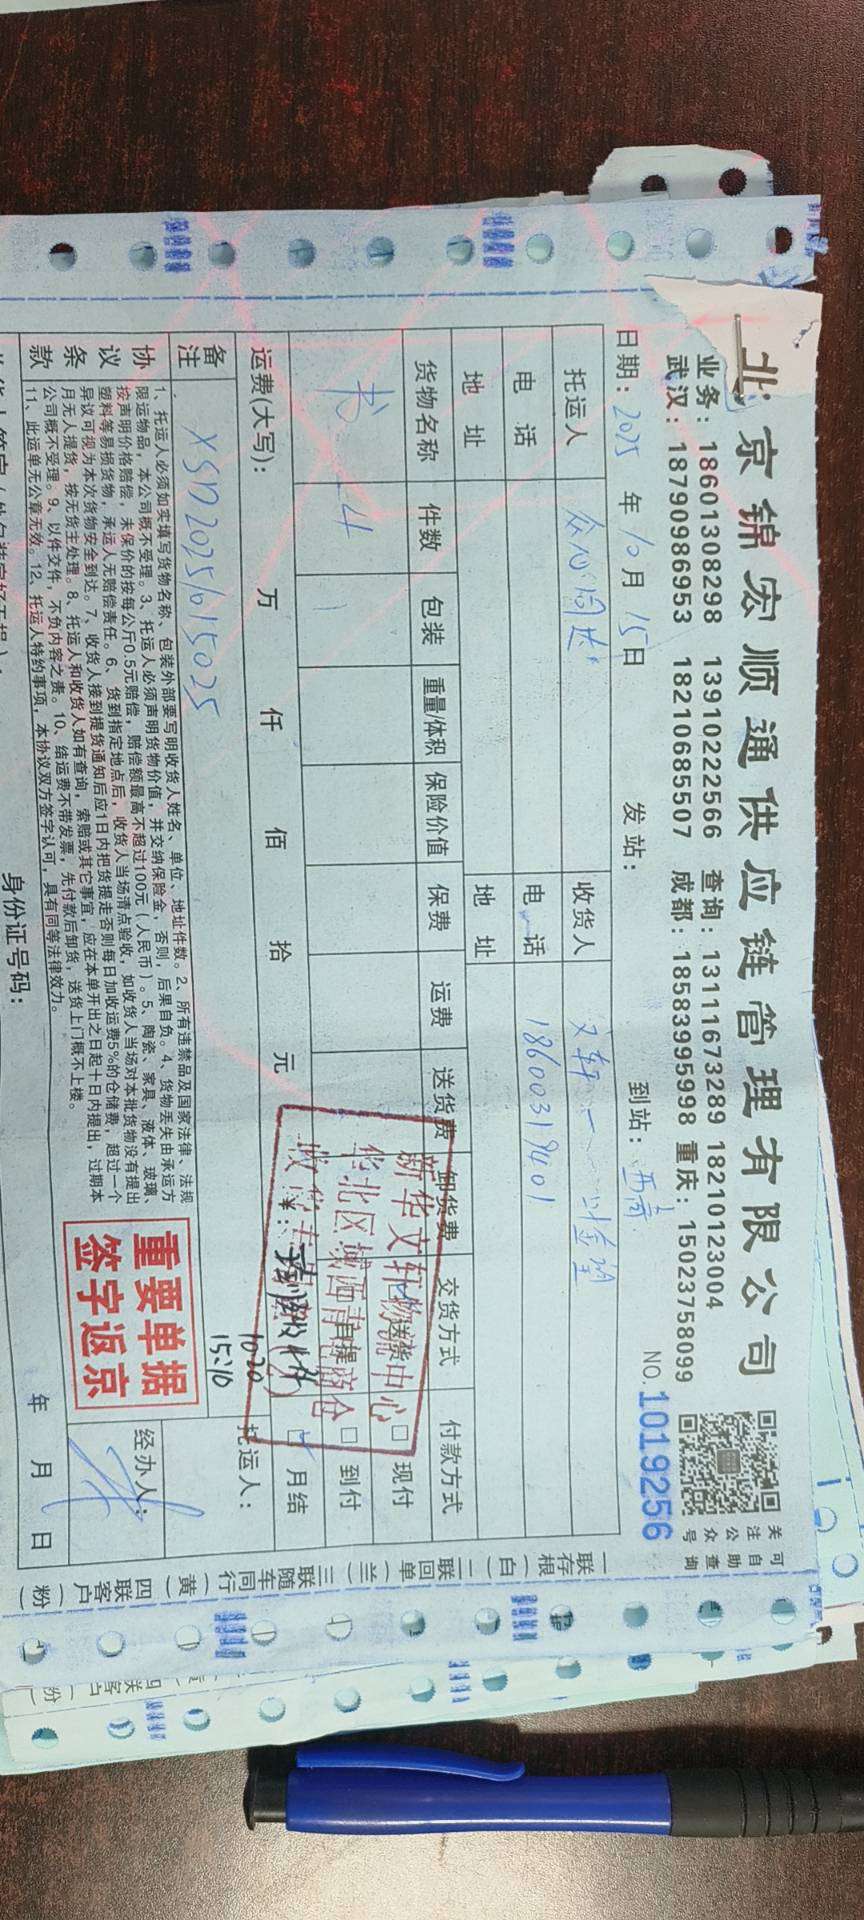 北京锦宏顺通供应链管理有限公司
业务：18601308298 13910222566 查询：13111673289 18210123004
武汉：18790986953 18210685507 成都：18583995998 重庆：15023758099
可自助查询
关注公众号
NO.1019256
日期：2025年10月15日 发站： 到站：
托运人 收货人 文轩
电话 电话 18600319401
地址 地址
货物名称 件数 包装 重量/体积 保险价值 保费 运费 送货费 卸货费 交货方式 付款方式
书 4 送货 □现付
自提 □到付
月结
运费(大写)： 万 仟 佰 拾 元 ¥：
新华文轩物流中心
华北区域西南
备注 XSD20251015025
10.20
15:10
托运人：
协议条款
1、托运人必须如实填写货物名称、包装外部要写明收货人姓名、单位、地址件数。2、所有违禁品及国家法律、法规
限运物品，本公司概不受理。3、托运人必须声明货物价值，并交纳保险金，否则，后果自负。4、货物丢失由承运方
按声明价格赔偿，未保价的按每公斤0.5元赔偿，赔偿额最高不超过100元（人民币）。5、陶瓷、家具、液体、玻璃、
塑料等易损货物，承运人无赔偿责任。6、货到指定地点后，收货人当场清点验收，如收货人当场对本批货物没有提出
异议可视为本次货物安全到达。7、收货人接到提货通知后应1日内把货提走否则每日加收运费5%的仓储费，超过一个
月无人提货，按无货主处理。8、托运人和收货人如有查询，索赔或其它事宜，应在本单开出之日起十日内提出，过期本
公司概不受理。9、以件交件，不负内容之责。10、结运费不带发票，先付款后卸货，送货上门概不上楼。
11、此运单无公章无效。12、托运人特约事项，本协议双方签字认可，具有同等法律效力。
重要单据
签字返京
经办人：
年 月 日
身份证号码：
一联存根（白）二联回单（兰）三联随车同行（黄）四联客户（粉）